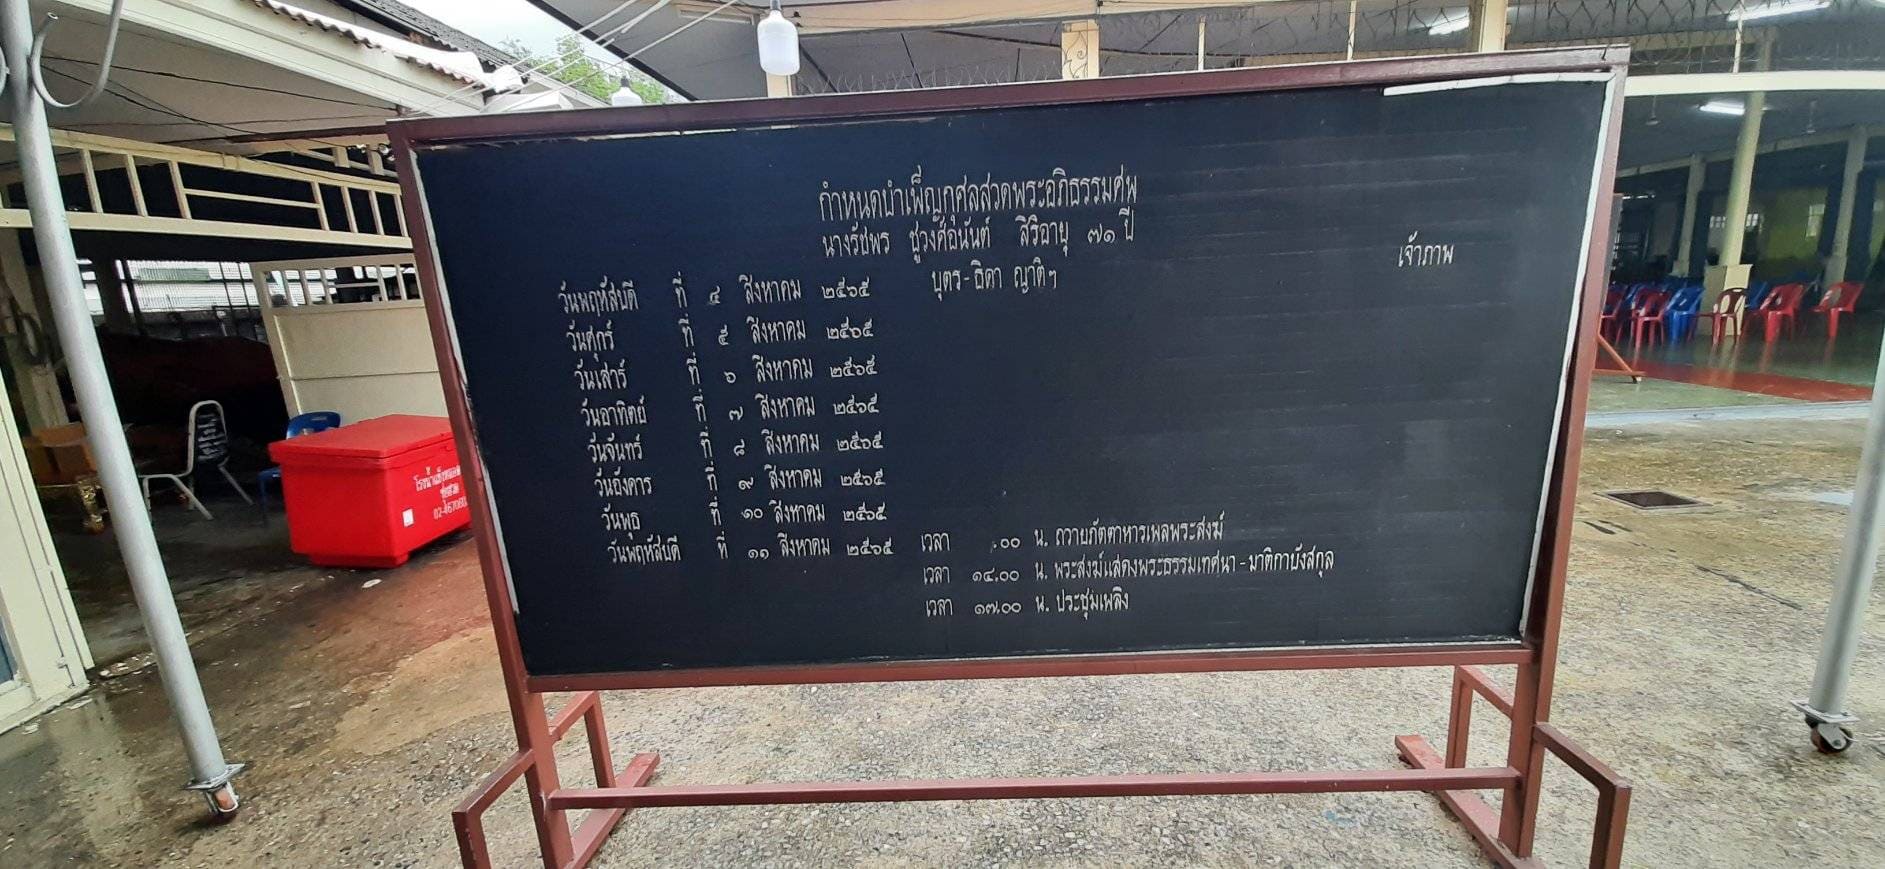 กำหนดบำเพ็ญกุศลสวดพระอภิธรรมศพ
นางรัชพร ชูวงศ์อนันต์ สิริอายุ ๗๑ ปี
เจ้าภาพ
วันพฤหัสบดี ที่ ๔ สิงหาคม ๒๕๖๕ บุตร-ธิดา ญาติๆ
วันศุกร์ ที่ ๕ สิงหาคม ๒๕๖๕
วันเสาร์ ที่ ๖ สิงหาคม ๒๕๖๕
วันอาทิตย์ ที่ ๗ สิงหาคม ๒๕๖๕
วันจันทร์ ที่ ๘ สิงหาคม ๒๕๖๕
วันอังคาร ที่ ๙ สิงหาคม ๒๕๖๕
วันพุธ ที่ ๑๐ สิงหาคม ๒๕๖๕
วันพฤหัสบดี ที่ ๑๑ สิงหาคม ๒๕๖๕ เวลา .๐๐ น. ถวายภัตตาหารเพลพระสงฆ์
เวลา ๑๔.๐๐ น. พระสงฆ์แสดงพระธรรมเทศนา-มาติกาบังสกุล
เวลา ๑๗.๐๐ น. ประชุมเพลิง